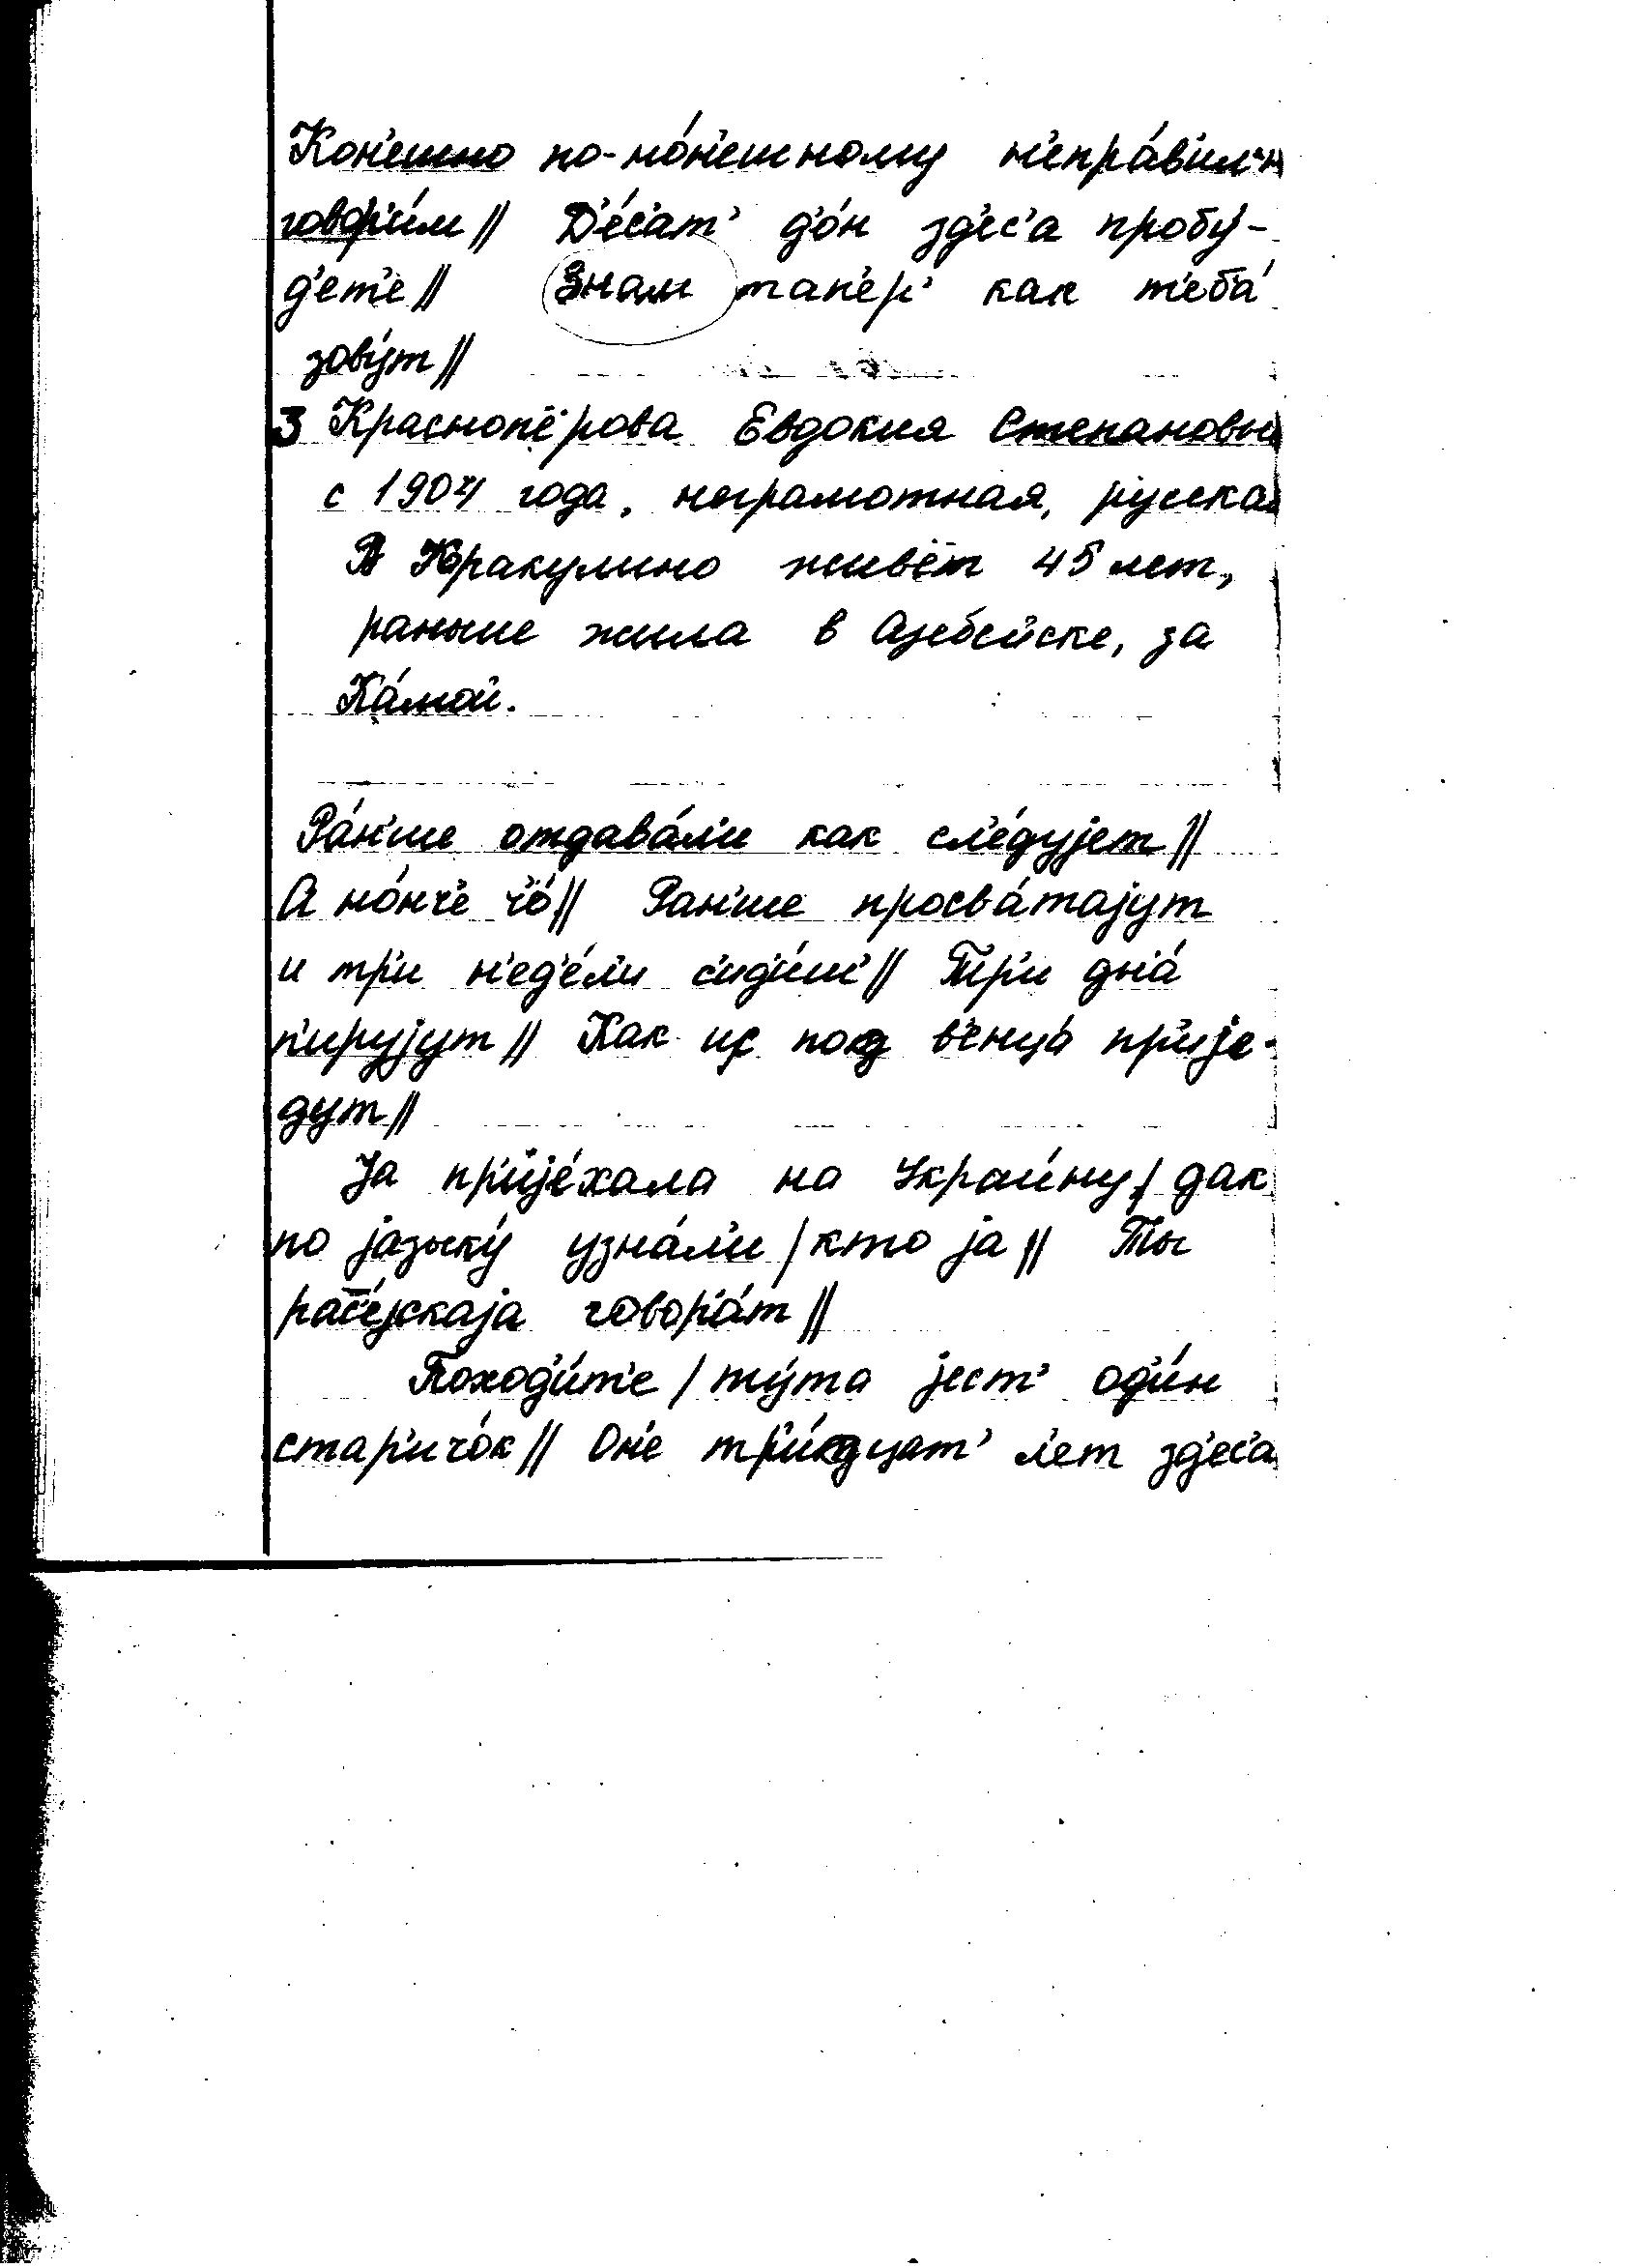 Кон'ешно по-но́н'ешному н'епра́в'ил'н
говор'и́м // Д'е́с'ат' д'о́н зд'ес'а пробу́-
д'ет'е // Знам тап'ер' как т'еб'а́
зову́т //
3 Краснопёрова Евдокия Степановн
с 1904 года, неграмотная, русская
В Юракулино живёт 45 лет,
раньше жила в Азебейске, за
Ка́мой.
Ра́н'ше отдава́л'и как сл'е́дуjет //
А но́нч'е ч'о́ // Ран'ше просва́таjут
и тр'и н'ед'е́л'и с'ид'и́ш' // Тр'и дн'а́
п'ируjут // Как ис под в'енца́ пр'иjе-
дут //
Jа пр'иjе́хала на Украи́ну / дак
по jазыку́ узна́л'и / кто jа // Ты
рас'е́jскаjа говор'а́т //
Поход'и́т'е / ту́та jест' од'и́н
стар'ичо́к // Он'е тр'и́дцат' л'ет зд'ес'а